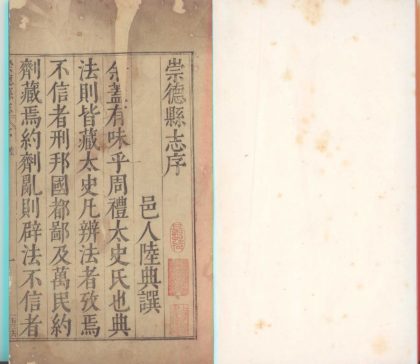 崇德縣志序
邑人陸典譔
余蓋有味乎周禮太史氏也典
法則皆藏太史凡辨法者攷焉
不信者刑邦國都鄙及萬民約
劑藏焉約劑亂則辟法不信者